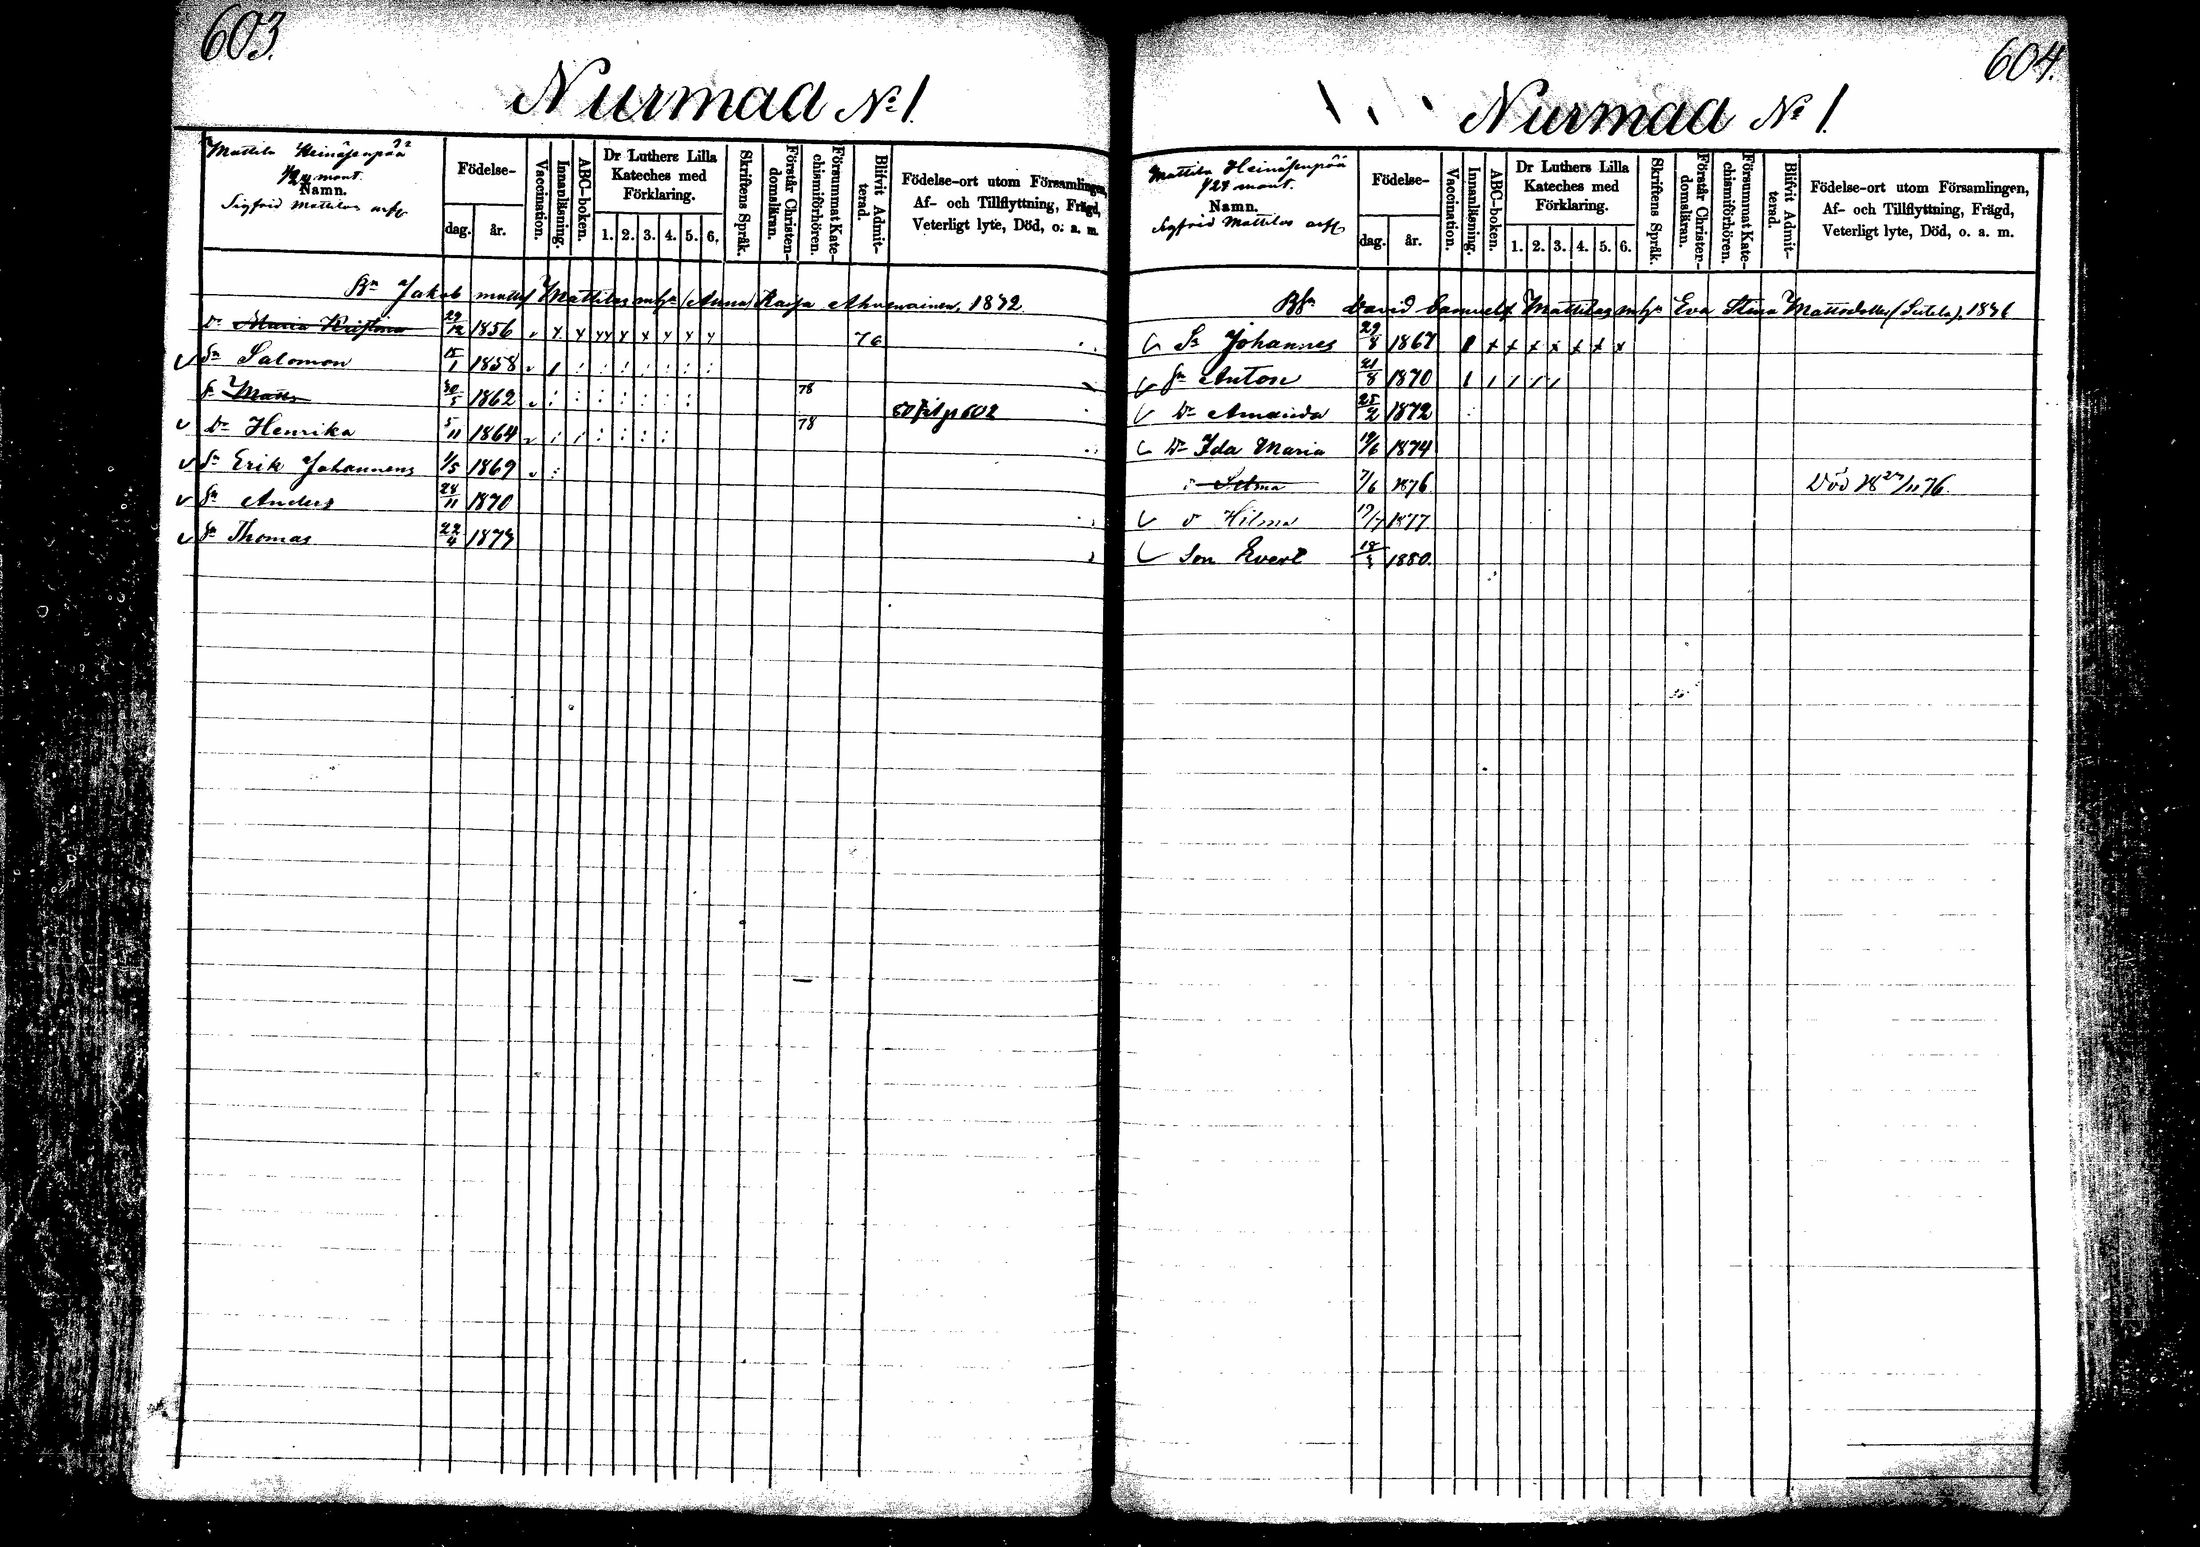 603.
Nurmaa No 1.
Mattila Heinäsenpää
1/24 mant.
Namn.
Sigfrid Mattilas arfv
Födelse-
dag. år.
Vaccination.
Innanläsning.
ABC-boken.
Dr Luthers Lilla Kateches med Förklaring.
1. 2. 3. 4. 5. 6.
Skriftens Språk.
Förstår Christendomsläran.
Försummat Katechismiförhören.
Blifvit Admitterad.
Födelse-ort utom Församlingen,
Af- och Tillflyttning, Frägd,
Veterligt lyte, Död, o. a. m.
Bn Jakob Mattilas (Anna) Kaisa 1842
Dr Maria Kristina 29/12 1856 76
Sn Salomon 1858
Sn Matts 30/5 1862 78 p 602
Dr Henrika 5/11 1864 78
Sn Erik Johannes 1/5 1869
Sn Anders 28/11 1870
Sn Thomas 22/4 1873
604.
Nurmaa No 1.
Mattila Heinäsenpää
1/24 mant.
Namn.
Sigfrid Mattilas arfv
Födelse-
dag. år.
Vaccination.
Innanläsning.
ABC-boken.
Dr Luthers Lilla Kateches med Förklaring.
1. 2. 3. 4. 5. 6.
Skriftens Språk.
Förstår Christendomsläran.
Försummat Katechismiförhören.
Blifvit Admitterad.
Födelse-ort utom Församlingen,
Af- och Tillflyttning, Frägd,
Veterligt lyte, Död, o. a. m.
David Samuels Mattilas Eva Stina Mattsdotter (Seitola), 1846
Sn Johannes 29/8 1867
Sn Anton 21/8 1870
Dr Amanda 25/2 1872
Dr Ida Maria 19/6 1874
Selma 7/6 1876. Död 18 27/11 76.
D Hilma 17/7 1877
Son Evert 1880.